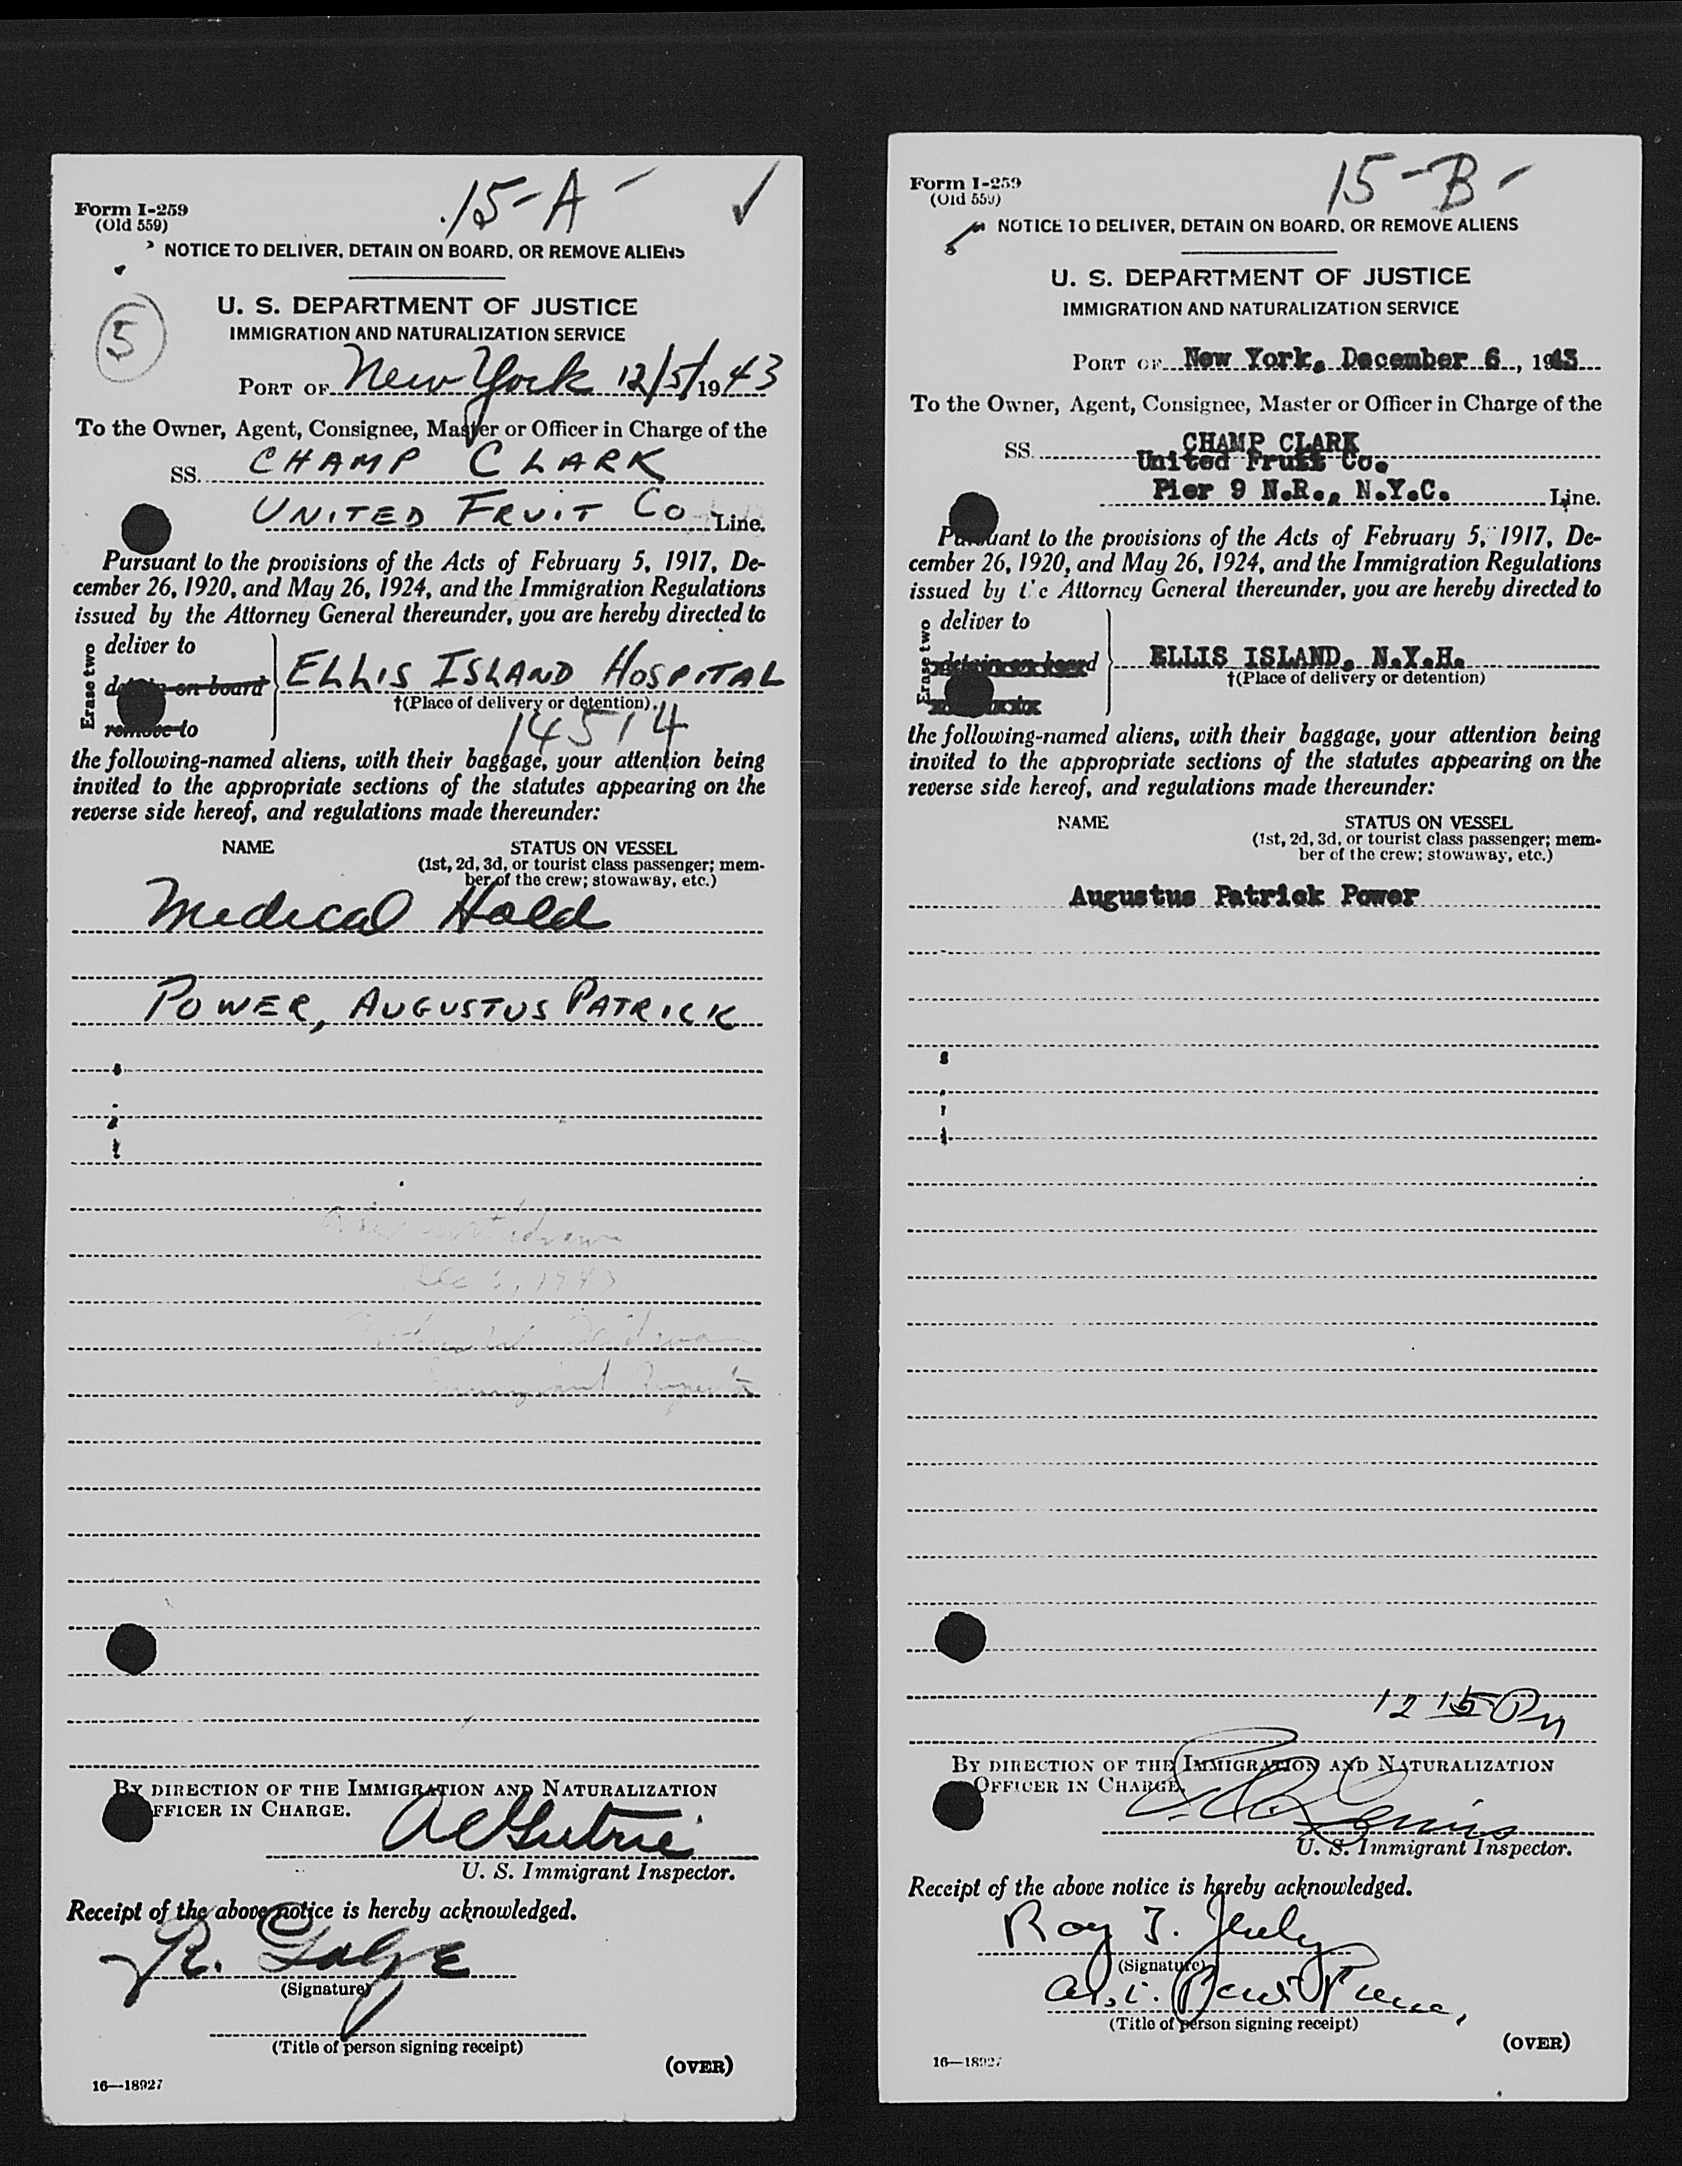 15-A
Form I-259
(Old 559)
NOTICE TO DELIVER, DETAIN ON BOARD, OR REMOVE ALIENS
U. S. DEPARTMENT OF JUSTICE
IMMIGRATION AND NATURALIZATION SERVICE
5
PORT OF New York 12/5/1943
To the Owner, Agent, Consignee, Master or Officer in Charge of the
SS. CHAMP CLARK
UNITED FRUIT CO Line.
Pursuant to the provisions of the Acts of February 5, 1917, De-
cember 26, 1920, and May 26, 1924, and the Immigration Regulations
issued by the Attorney General thereunder, you are hereby directed to
Erase two
deliver to
detain on board
remove to
ELLIS ISLAND HOSPITAL
†(Place of delivery or detention).
14514
the following-named aliens, with their baggage, your attention being
invited to the appropriate sections of the statutes appearing on the
reverse side hereof, and regulations made thereunder:
NAME STATUS ON VESSEL
(1st, 2d, 3d, or tourist class passenger; mem-
ber of the crew; stowaway, etc.)
Medical Hold
POWER, AUGUSTUS PATRICK
1943
BY DIRECTION OF THE IMMIGRATION AND NATURALIZATION
OFFICER IN CHARGE.
U. S. Immigrant Inspector.
Receipt of the above notice is hereby acknowledged.
R.
(Signature)
(Title of person signing receipt)
(OVER)
16—18927
15-B
Form I-259
(Old 559)
NOTICE TO DELIVER, DETAIN ON BOARD, OR REMOVE ALIENS
U. S. DEPARTMENT OF JUSTICE
IMMIGRATION AND NATURALIZATION SERVICE
PORT OF New York, December 6, 1943
To the Owner, Agent, Consignee, Master or Officer in Charge of the
SS. CHAMP CLARK
United Fruit Co.
Pier 9 N.R., N.Y.C. Line.
Pursuant to the provisions of the Acts of February 5, 1917, De-
cember 26, 1920, and May 26, 1924, and the Immigration Regulations
issued by the Attorney General thereunder, you are hereby directed to
Erase two
deliver to
detain on board
ELLIS ISLAND, N.Y.H.
†(Place of delivery or detention)
the following-named aliens, with their baggage, your attention being
invited to the appropriate sections of the statutes appearing on the
reverse side hereof, and regulations made thereunder:
NAME STATUS ON VESSEL
(1st, 2d, 3d, or tourist class passenger; mem-
ber of the crew; stowaway, etc.)
Augustus Patrick Power
12 15 Pm
BY DIRECTION OF THE IMMIGRATION AND NATURALIZATION
OFFICER IN CHARGE.
U. S. Immigrant Inspector.
Receipt of the above notice is hereby acknowledged.
Roy J.
(Signature)
(Title of person signing receipt)
(OVER)
16—18927